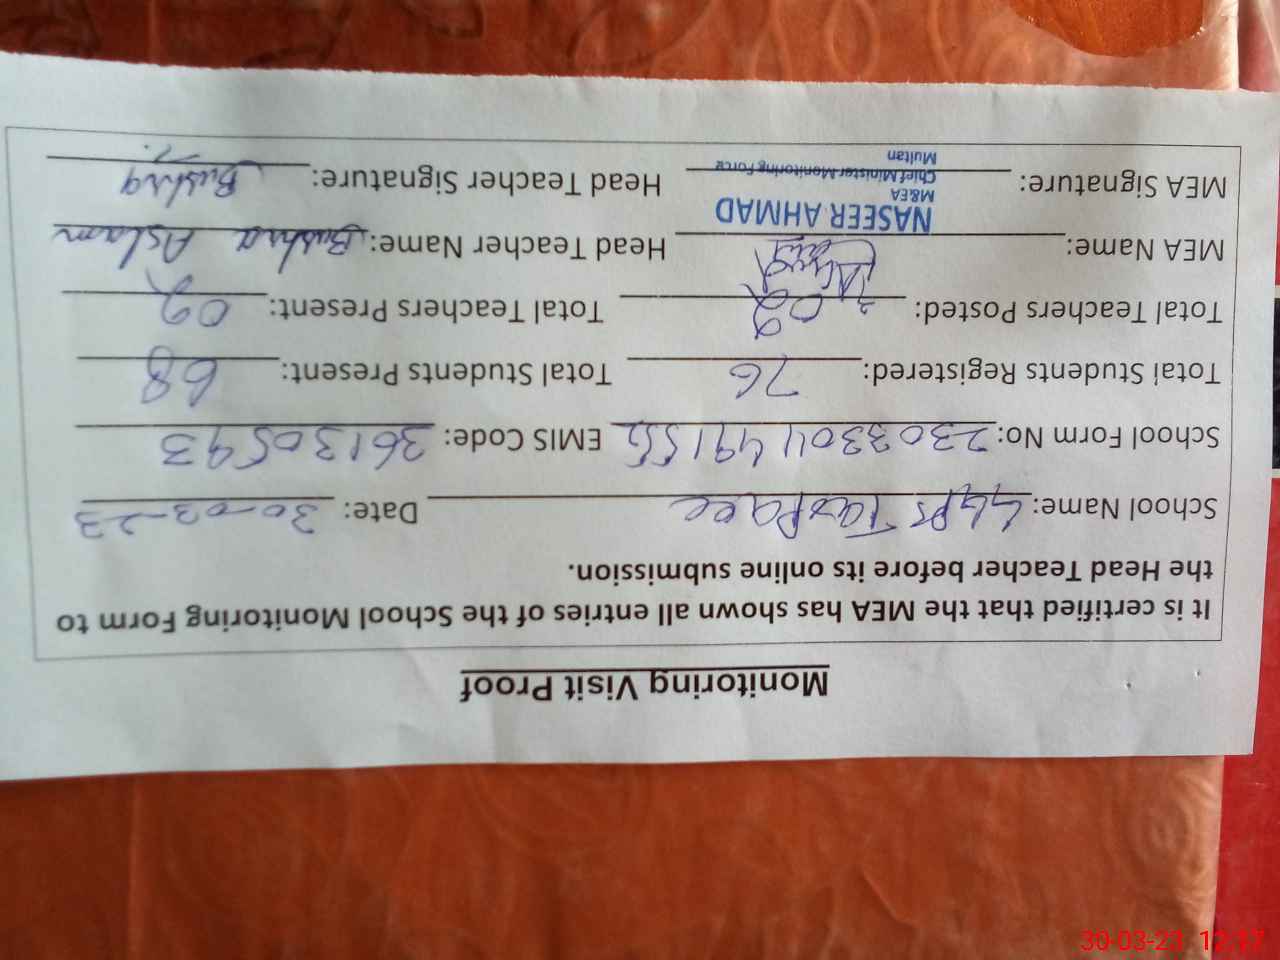 Monitoring Visit Proof
It is certified that the MEA has shown all entries of the School Monitoring Form to
the Head Teacher before its online submission.
School Name: GGPS Date: 30-03-23
School Form No: EMIS Code: 36130593
Total Students Registered: 76 Total Students Present: 68
Total Teachers Posted: 02 Total Teachers Present: 02
MEA Name: Head Teacher Name: Bushra Aslam
NASEER AHMAD
M&EA
Chief Minister Monitoring Force
Multan
MEA Signature: Head Teacher Signature: Bushra
30-03-23 12:17